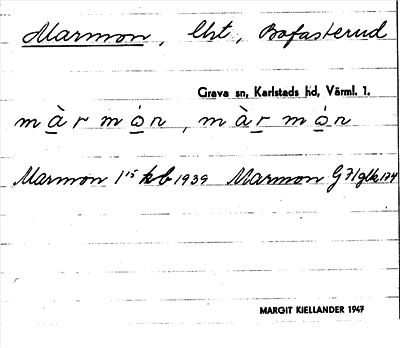 Marmon, lht, Bofasterud
Grava sn, Karlstads hd, Värml. l.
màrmòn, màrmòn
Marmon 1¹⁵ kb 1939 Marmon G 71 glk 174
MARGIT KIELLANDER 1947